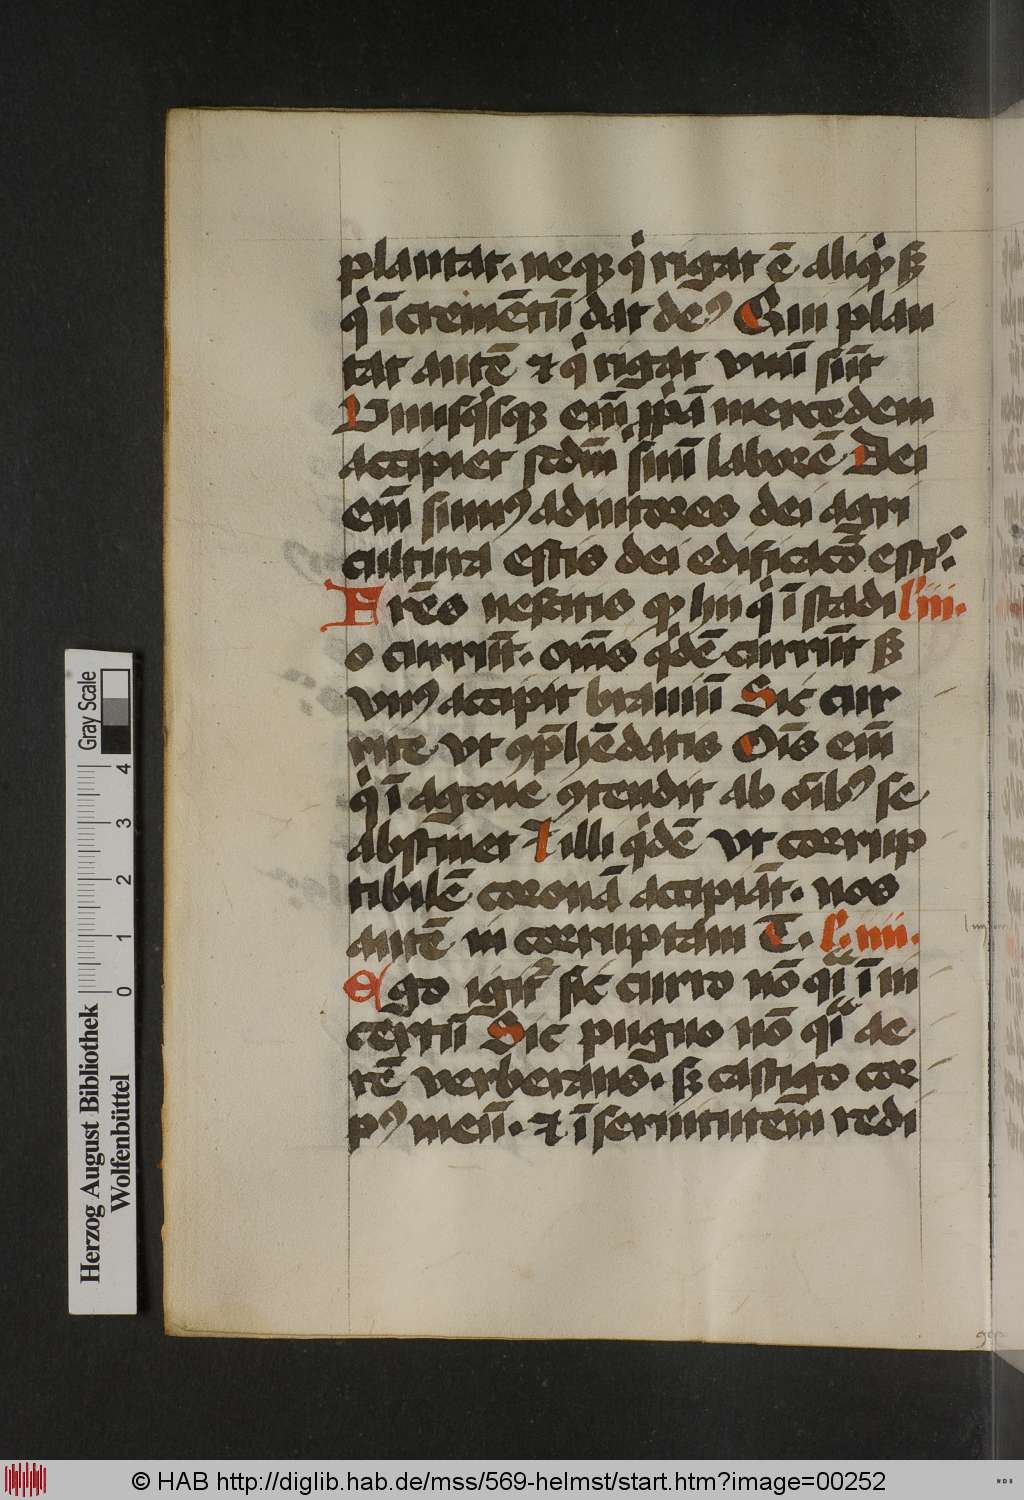 plantat. neqꝫ qͥ rigat ē aliqͥd sꝫ
qͥ īcremētū dat deꝰ Qui plan
tat autē ⁊ qͥ rigat vnū sūt
Vnusqͥsqꝫ em̄ ꝓpͥā mercedem
accipiet scdm̄ suū laborē Dei
em̄ sumꝰ adiutores dei agri
cultura estis dei edificacō estꝭ.
Frēs nescitis ꝙ hii qͥ ī stadi l' iii.
o currūt. om̄s qͥdē currūt sꝫ
vnꝰ accipit brauiū Sic cur
rite vt ꝯp̄hēdatis Oīs em̄
qͥ ī agone ꝯtendit ab oīibꝰ se
abstinet Et illi qͥdē vt corrup
tibilē coronā accipiāt. nos
autē in corruptam T. l'. iiii.
Ego igit᷑ sic curro nō qͣi ī in
certū Sic pugno nō qͣi ae
rē verberans. sꝫ castigo cor
pꝰ meū. ⁊ ī seruitutem̄ redi
Gray Scale
4
3
2
1
0
Herzog August Bibliothek
Wolfenbüttel
© HAB http://diglib.hab.de/mss/569-helmst/start.htm?image=00252